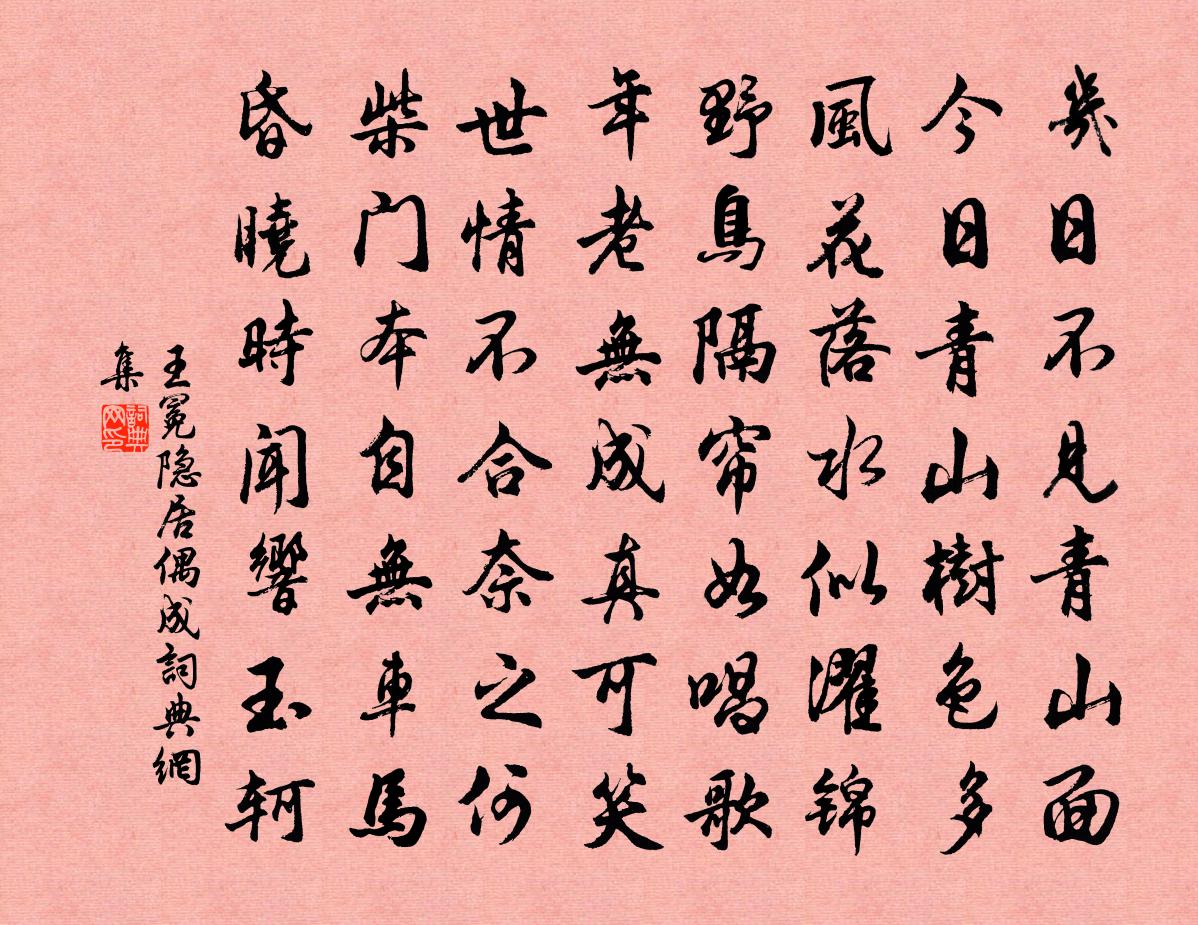 幾日不見青山面
今日青山樹色多
風花落水似濯锦
野鳥隔帘如唱歌
年老無成真可笑
世情不合奈之何
柴门本自無車馬
昏曉時闻響玉轲
王冕隐居偶成詞典網
集
詞典
网印